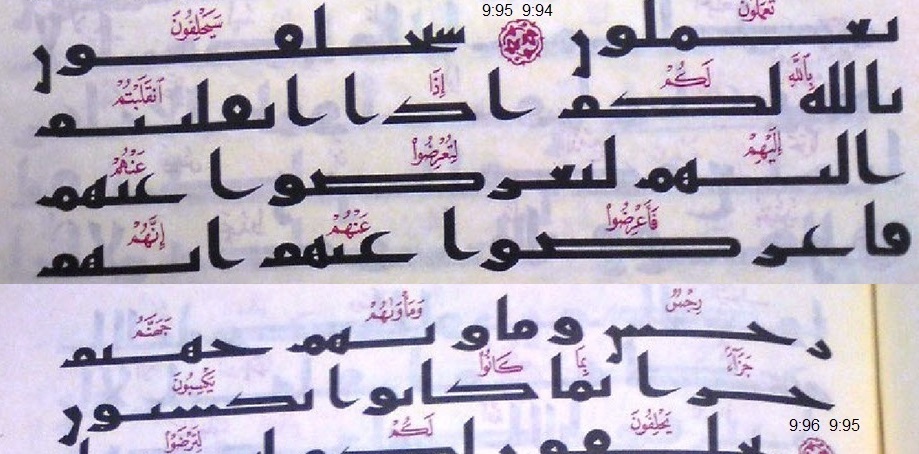 9:95 9:94
تَعْمَلُونَ سَيَحْلِفُونَ
تعملون سيحلفون
بِٱللَّهِ لَكُمْ إِذَا ٱنقَلَبْتُمْ
بالله لكم اذا انقلبتم
إِلَيْهِمْ لِتُعْرِضُوا۟ عَنْهُمْ
اليهم لتعرضوا عنهم
فَأَعْرِضُوا۟ عَنْهُمْ إِنَّهُمْ
فاعرضوا عنهم انهم
رِجْسٌ وَمَأْوَىٰهُمْ جَهَنَّمُ
رجس وماويهم جهنم
جَزَآءًۢ بِمَا كَانُوا۟ يَكْسِبُونَ
جزا بما كانوا يكسبون
9:96 9:95
يَحْلِفُونَ لَكُمْ لِتَرْضَوْا۟